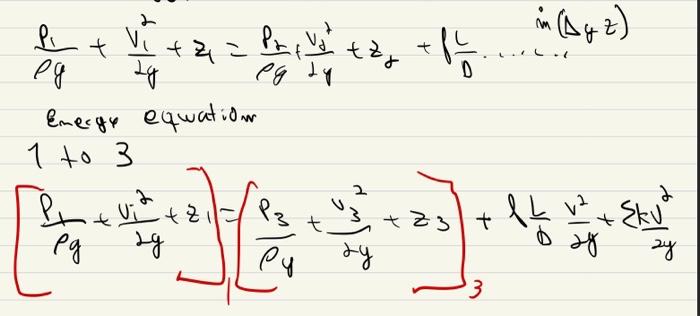 in (Δy z)
P₁/ρg + V₁²/2g + z₁ = P₂/ρg + V₂²/2g + z₂ + f L/D ........
Energy equation
1 to 3
[P₁/ρg + V₁²/2g + z₁]₁ = [P₃/ρg + V₃²/2g + z₃]₃ + f L/D V²/2g + ΣkV²/2g